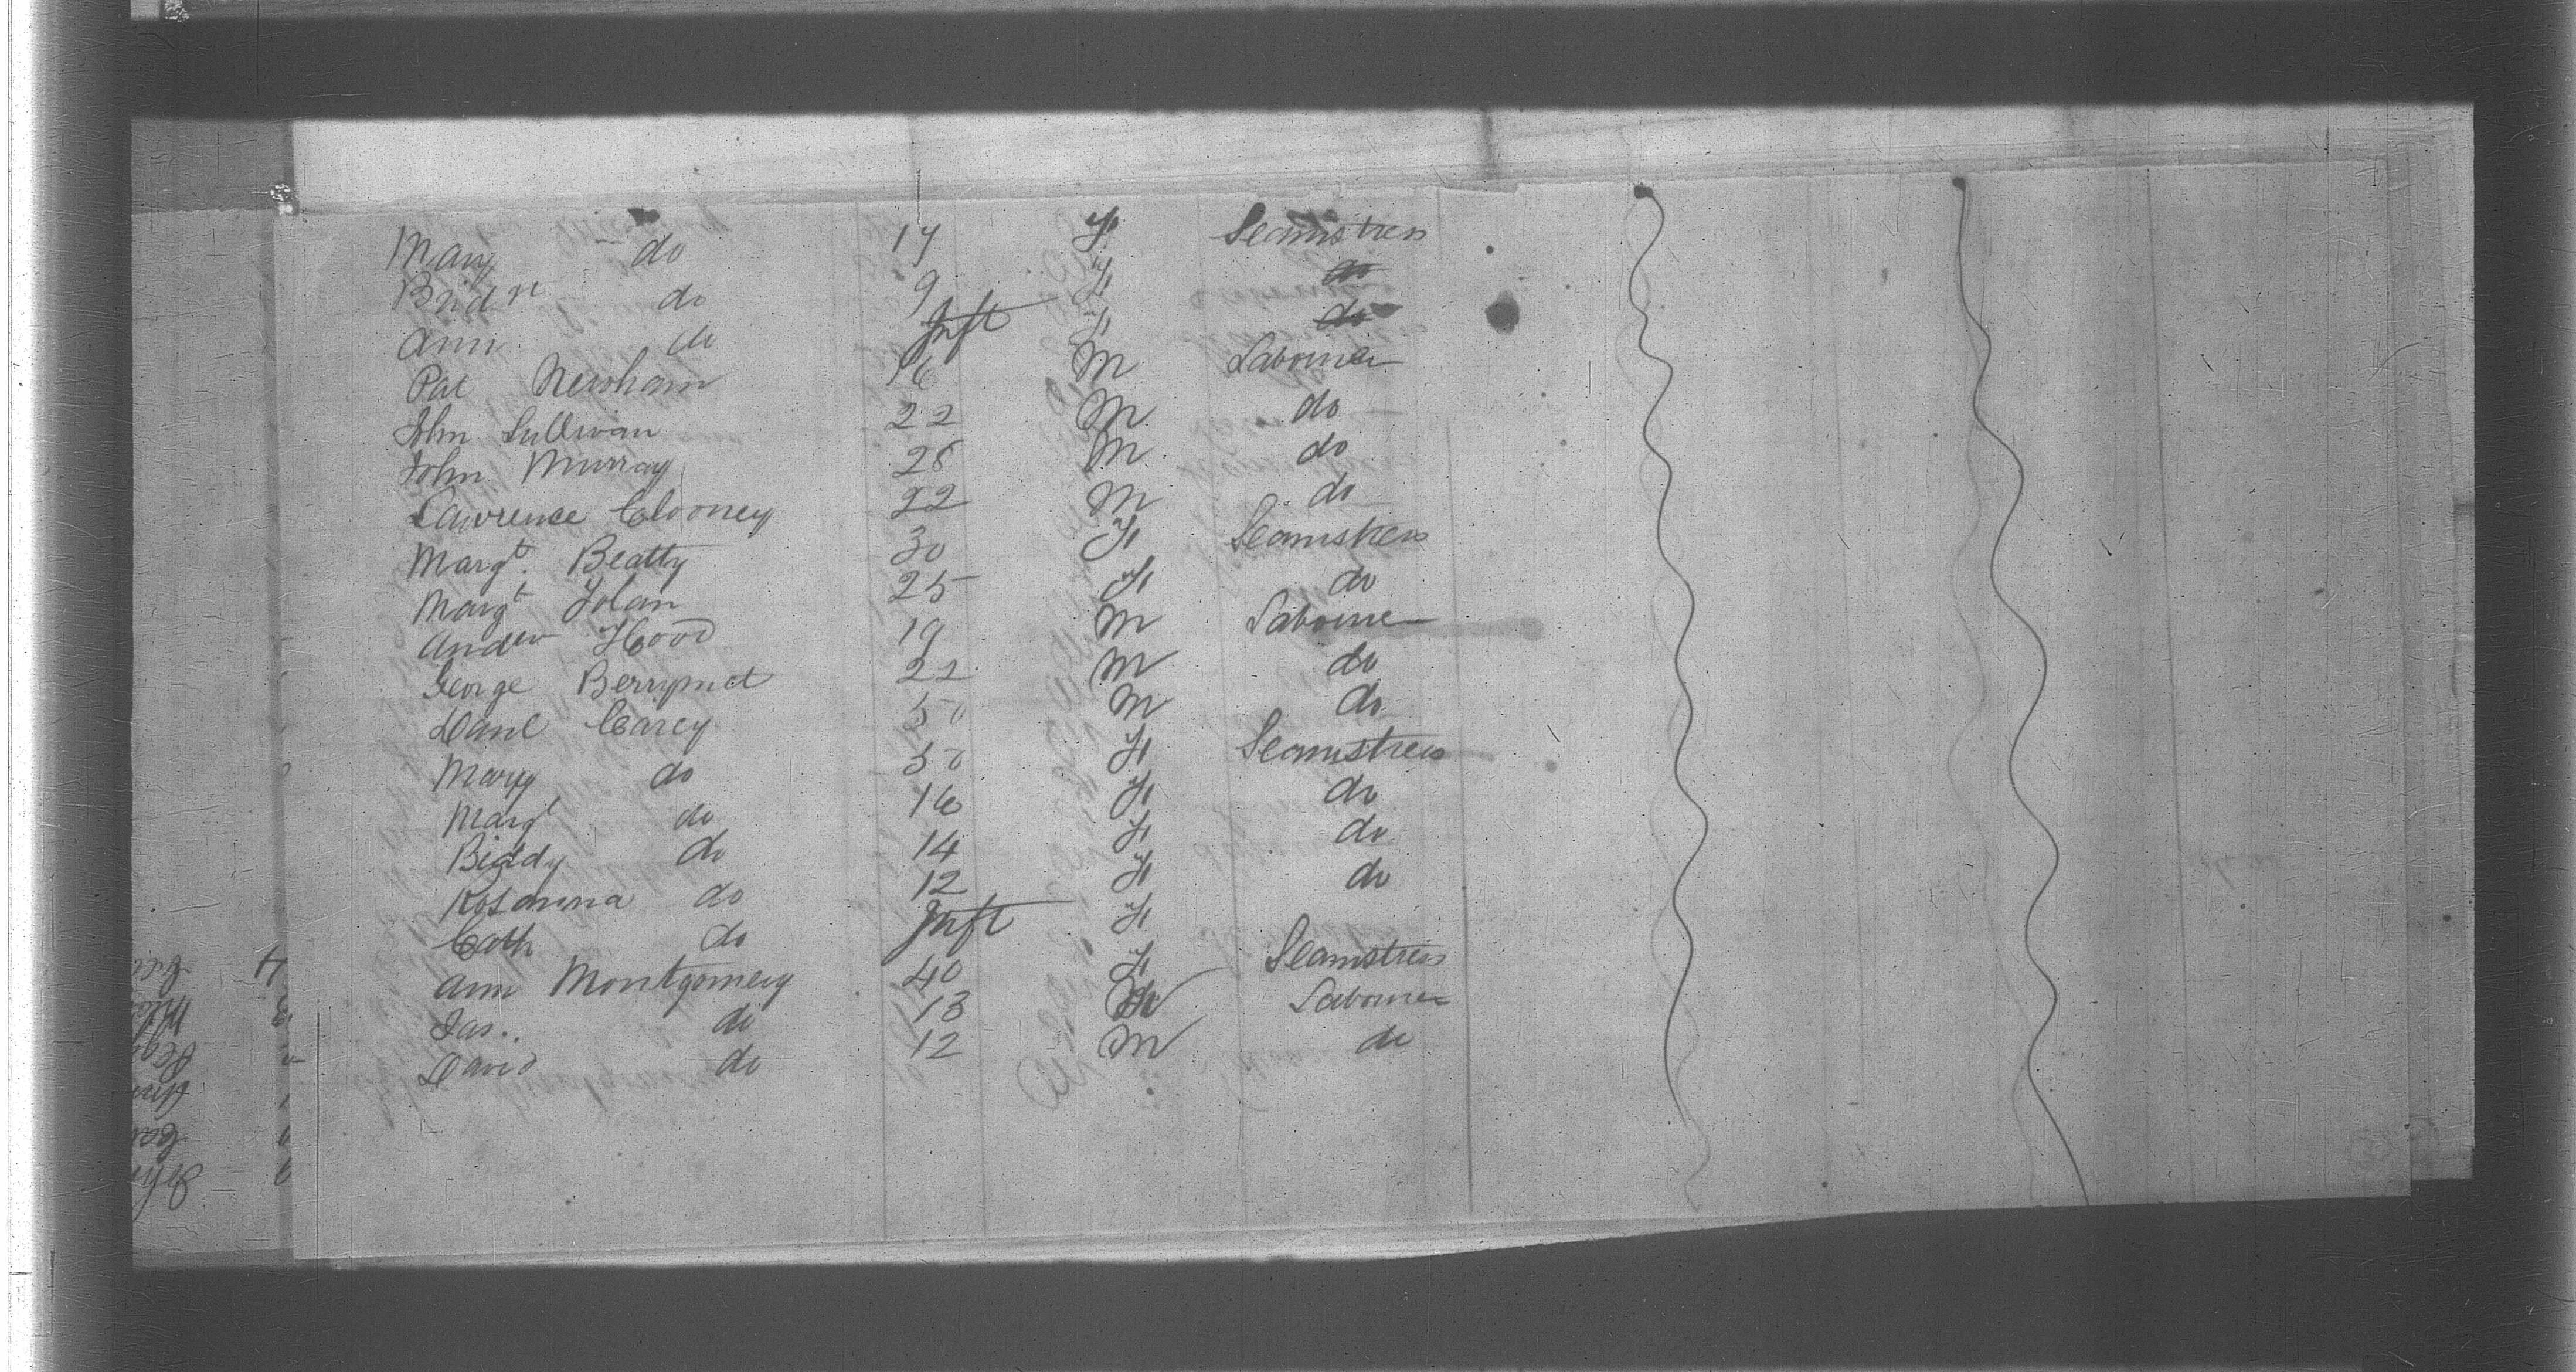 Mary do 17 F Seamstress
Bridt do 9 F do
Ann do Inft F do
Pat 16 M Labourer
John Sullivan 22 M do
John Murray 28 M do
Lawrence Clooney 22 M do
Margt. Beatty 30 F Seamstress
Margt Folan 25 F do
Andw Hood 19 M Labourer
George 22 M do
Danl Carey 50 M do
Mary do 50 F Seamstress
Margt do 16 F do
Biddy do 14 F do
Rosanna do 12 F do
Cath do Inft F
Ann Montgomery 40 F Seamstress
Jas. do 13 Labourer
David do 12 M do